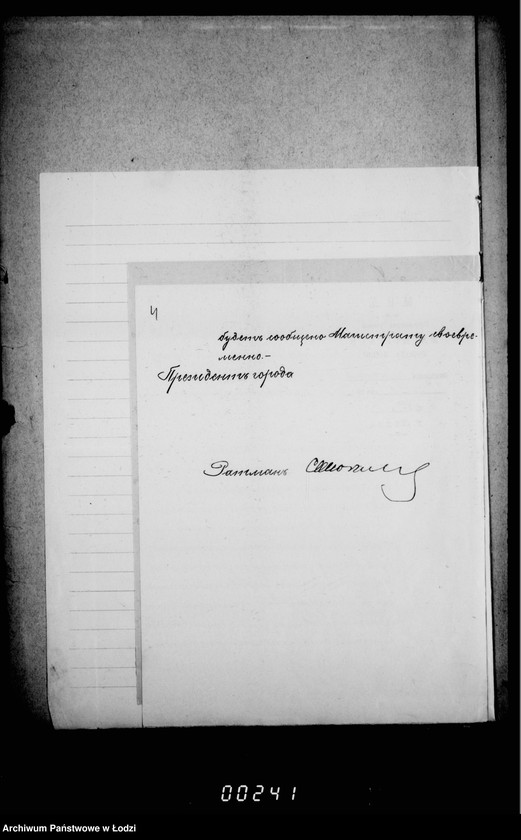 4
будетъ сообщено Магистрату своевре-
менно.-
Президентъ города
Ратманъ
00241
Archiwum Państwowe w Łodzi